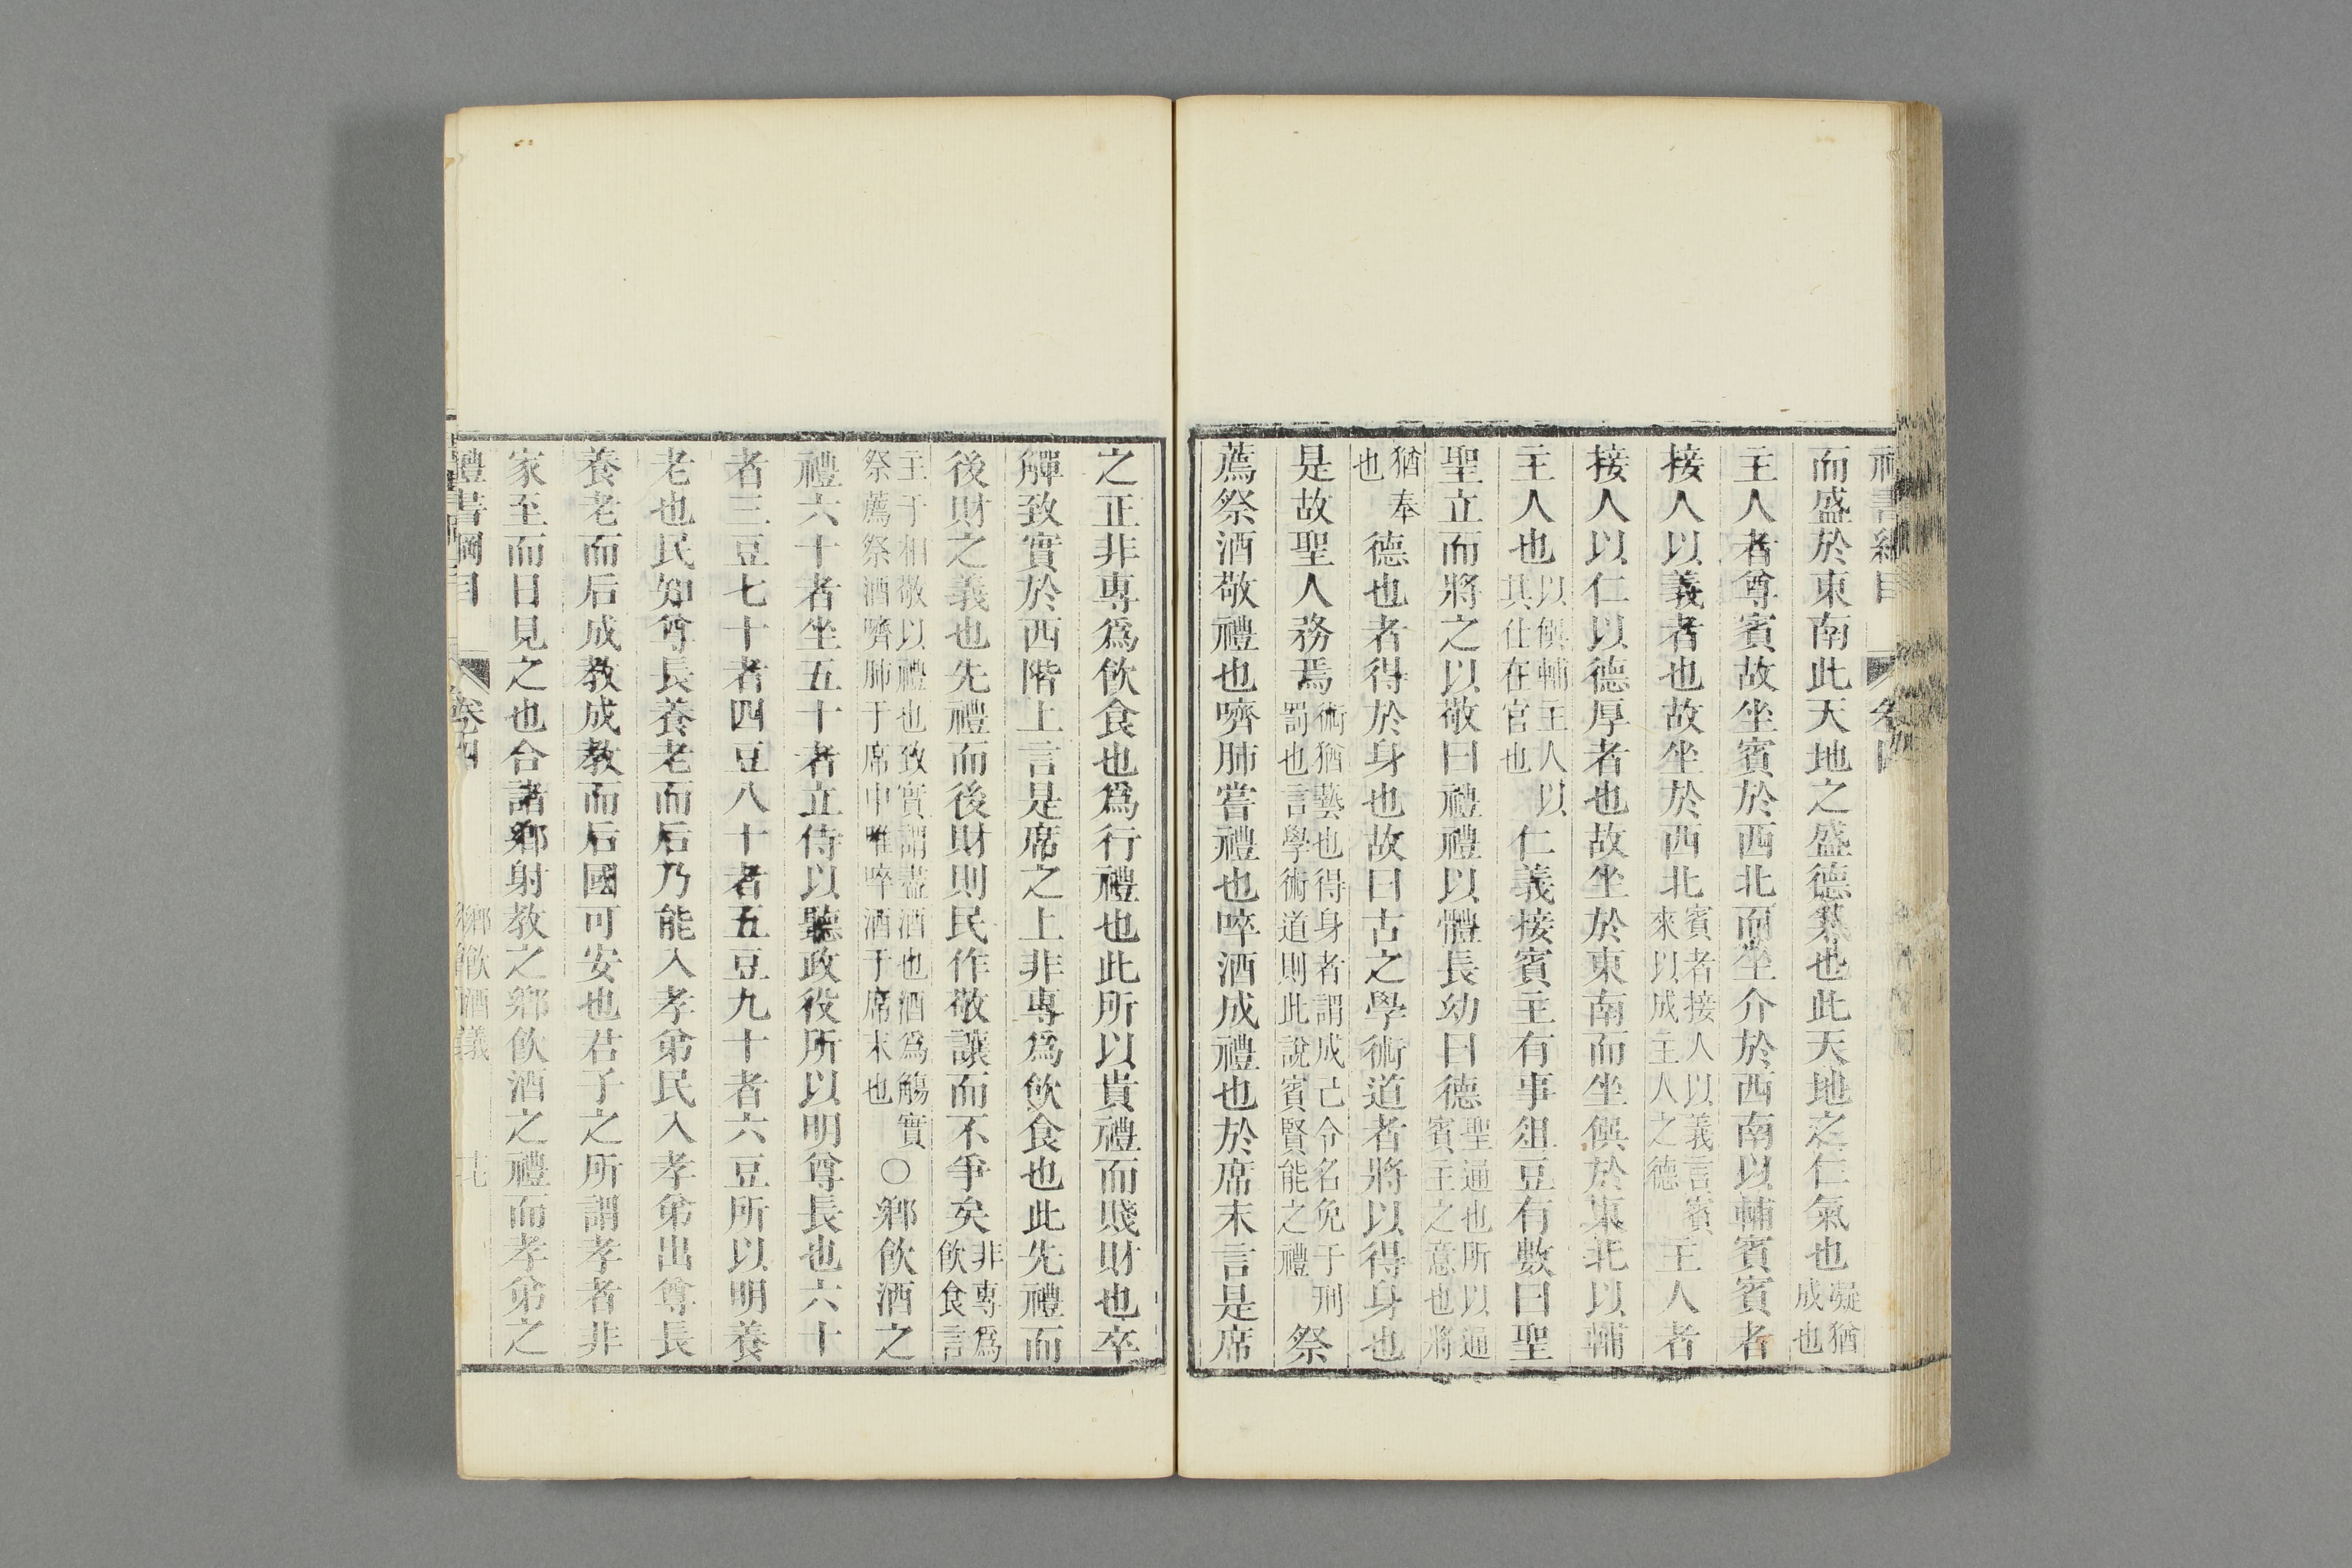 而盛於東南此天地之盛德氣也此天地之仁氣也凝猶成也
主人者尊賓故坐賓於西北而坐介於西南以輔賓賓者
接人以義者也故坐於西北賓者接人以義言賓來以成主人之德主人者
接人以仁以德厚者也故坐於東南而坐僎於東北以輔
主人也以僎輔主人以其仕在官也仁義接賓主有事俎豆有數曰聖
聖立而將之以敬曰禮禮以體長幼曰德聖通也所以通賓主之意也將
猶奉也德也者得於身也故曰古之學術道者將以得身也
是故聖人務焉術猶藝也得身者謂成己令名免于刑罰也言學術道則此說賓賢能之禮祭
薦祭酒敬禮也嚌肺嘗禮也啐酒成禮也於席末言是席
之正非專爲飲食也爲行禮也此所以貴禮而賤財也卒
觶致實於西階上言是席之上非專爲飲食也此先禮而
後財之義也先禮而後財則民作敬讓而不爭矣非專爲飲食言
主于相敬以禮也致實謂盡酒也酒爲觴實祭薦祭酒嚌肺于席中唯啐酒于席末也〇鄉飲酒之
禮六十者坐五十者立侍以聽政役所以明尊長也六十
者三豆七十者四豆八十者五豆九十者六豆所以明養
老也民知尊長養老而后乃能入孝弟民入孝弟出尊長
養老而后成教成教而后國可安也君子之所謂孝者非
家至而日見之也合諸鄉射教之鄉飲酒之禮而孝弟之
禮書綱目 卷四 鄉飲酒義